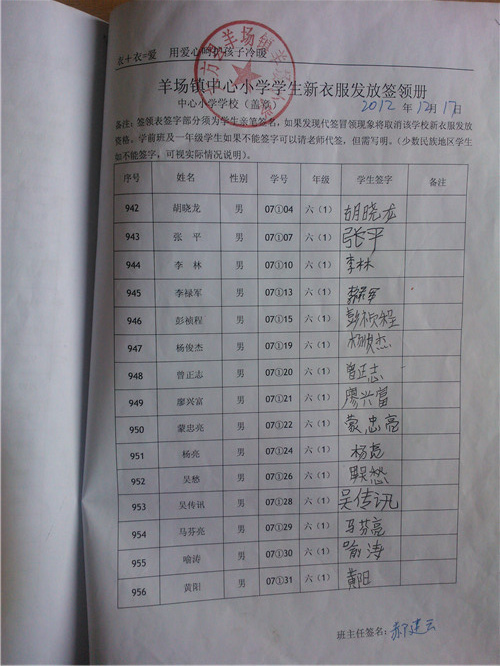 衣+衣=爱 用爱心呵护孩子冷暖
羊场镇中心小学学生新衣服发放签领册
中心小学学校(盖章) 2012年12月17日
备注:签领表签字部分须为学生亲笔签名,如果发现代签冒领现象将取消该学校新衣服发放
资格,学前班及一年级学生如果不能签字可以请老师代签,但需写明。(少数民族地区学生
如不能签字,可视实际情况说明)。
序号 姓名 性别 学号 年级 学生签字 备注
942 胡晓龙 男 07①04 六(1) 胡晓龙
943 张 平 男 07①07 六(1) 张平
944 李 林 男 07①10 六(1) 李林
945 李禄军 男 07①13 六(1)
946 彭祯程 男 07①15 六(1) 彭祯程
947 杨俊杰 男 07①19 六(1) 杨俊杰
948 曾正志 男 07①20 六(1) 曾正志
949 廖兴富 男 07①21 六(1) 廖兴富
950 蒙忠亮 男 07①22 六(1) 蒙忠亮
951 杨亮 男 07①24 六(1) 杨亮
952 吴愁 男 07①26 六(1) 吴愁
953 吴传讯 男 07①28 六(1) 吴传讯
954 马芬亮 男 07①29 六(1) 马芬亮
955 喻涛 男 07①30 六(1) 喻涛
956 黄阳 男 07①31 六(1) 黄阳
班主任签名:郝建云